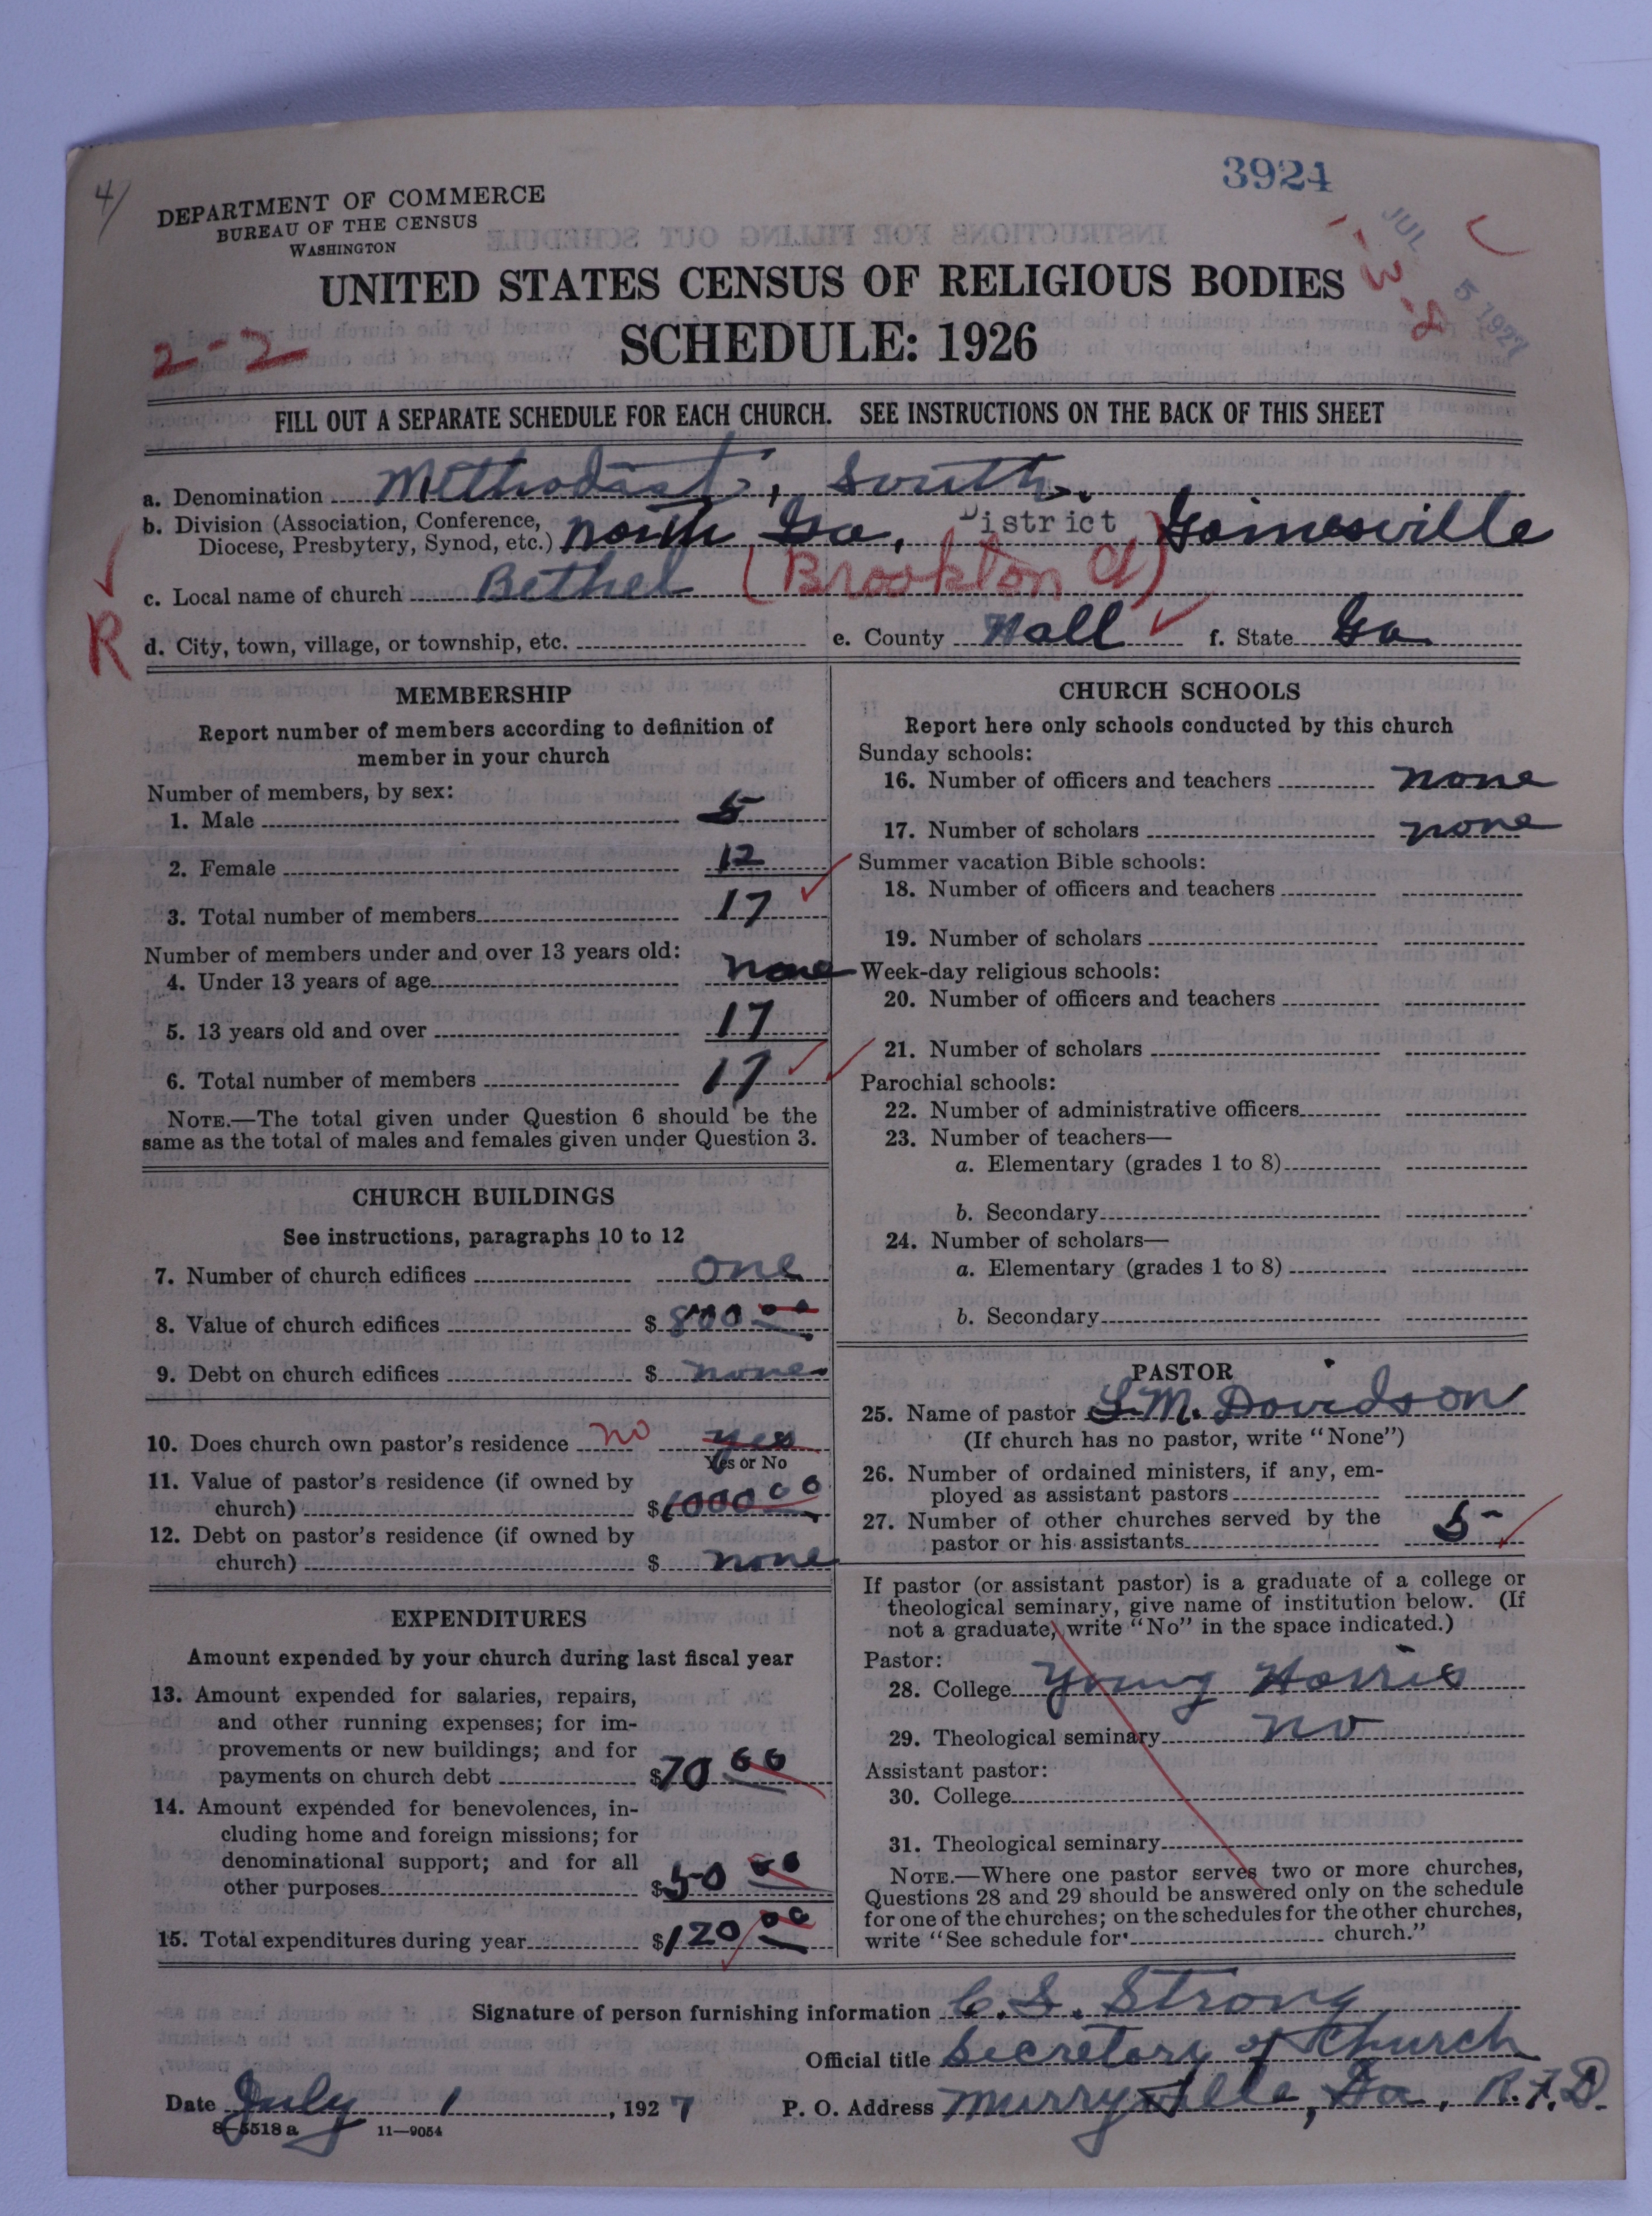 3924
4/
DEPARTMENT OF COMMERCE
BUREAU OF THE CENSUS
WASHINGTON
JUL 5 1927
UNITED STATES CENSUS OF RELIGIOUS BODIES
2-2
SCHEDULE: 1926
FILL OUT A SEPARATE SCHEDULE FOR EACH CHURCH. SEE INSTRUCTIONS ON THE BACK OF THIS SHEET
a. Denomination Methodist, South.
b. Division (Association, Conference, Diocese, Presbytery, Synod, etc.) North Ga, District Gainesville
c. Local name of church Bethel (Brookton
R
d. City, town, village, or township, etc. e. County Hall f. State Ga
MEMBERSHIP
Report number of members according to definition of
member in your church
Number of members, by sex:
1. Male 5
2. Female 12
3. Total number of members 17
Number of members under and over 13 years old:
4. Under 13 years of age none
5. 13 years old and over 17
6. Total number of members 17
NOTE.—The total given under Question 6 should be the
same as the total of males and females given under Question 3.
CHURCH BUILDINGS
See instructions, paragraphs 10 to 12
7. Number of church edifices one
8. Value of church edifices $ 800 00
9. Debt on church edifices $ none
10. Does church own pastor's residence no yes
Yes or No
11. Value of pastor's residence (if owned by
church) $ 6000 00
12. Debt on pastor's residence (if owned by
church) $ none
EXPENDITURES
Amount expended by your church during last fiscal year
13. Amount expended for salaries, repairs,
and other running expenses; for im-
provements or new buildings; and for
payments on church debt $ 70 00
14. Amount expended for benevolences, in-
cluding home and foreign missions; for
denominational support; and for all
other purposes $ 50 00
15. Total expenditures during year $ 120 00
CHURCH SCHOOLS
Report here only schools conducted by this church
Sunday schools:
16. Number of officers and teachers none
17. Number of scholars none
Summer vacation Bible schools:
18. Number of officers and teachers
19. Number of scholars
Week-day religious schools:
20. Number of officers and teachers
21. Number of scholars
Parochial schools:
22. Number of administrative officers
23. Number of teachers—
a. Elementary (grades 1 to 8)
b. Secondary
24. Number of scholars—
a. Elementary (grades 1 to 8)
b. Secondary
PASTOR
25. Name of pastor L. M. Davidson
(If church has no pastor, write "None")
26. Number of ordained ministers, if any, em-
ployed as assistant pastors
27. Number of other churches served by the
pastor or his assistants 5
If pastor (or assistant pastor) is a graduate of a college or
theological seminary, give name of institution below. (If
not a graduate, write "No" in the space indicated.)
Pastor:
28. College Young Harris
29. Theological seminary no
Assistant pastor:
30. College
31. Theological seminary
NOTE.—Where one pastor serves two or more churches,
Questions 28 and 29 should be answered only on the schedule
for one of the churches; on the schedules for the other churches,
write "See schedule for church."
Signature of person furnishing information C. S. Strong
Official title Secretary of Church
Date July 1, 1927 P. O. Address Murryville, Ga, R.F.D.
8-5518 a 11—9054